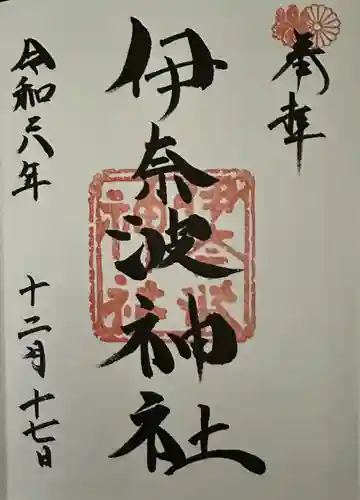 奉拝
伊奈波神社
伊奈波
神社
令和六年
十二月十七日